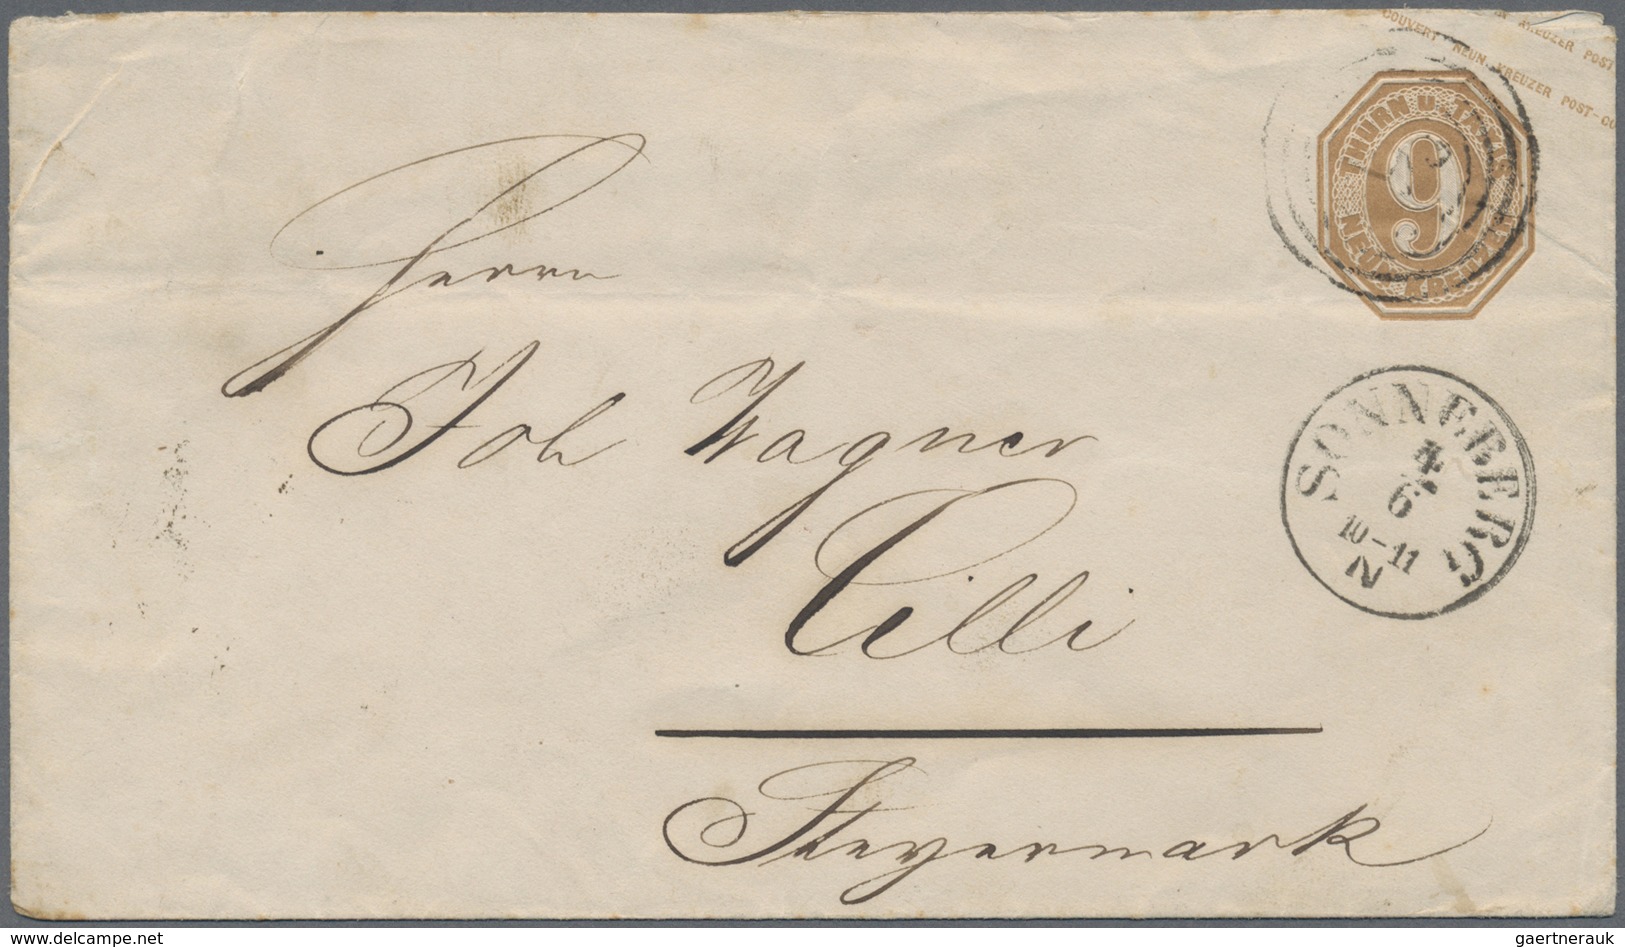 N KREUZER POST
COUVERT NEUN. KREUZER POST-CO
THURN U. TAXIS
9
NEUN KREUZER
Herrn
Joh Wagner
SONNEBERG
4
6
10-11
N
Cilli
Steyermark
delcampe.net
gaertnerauk